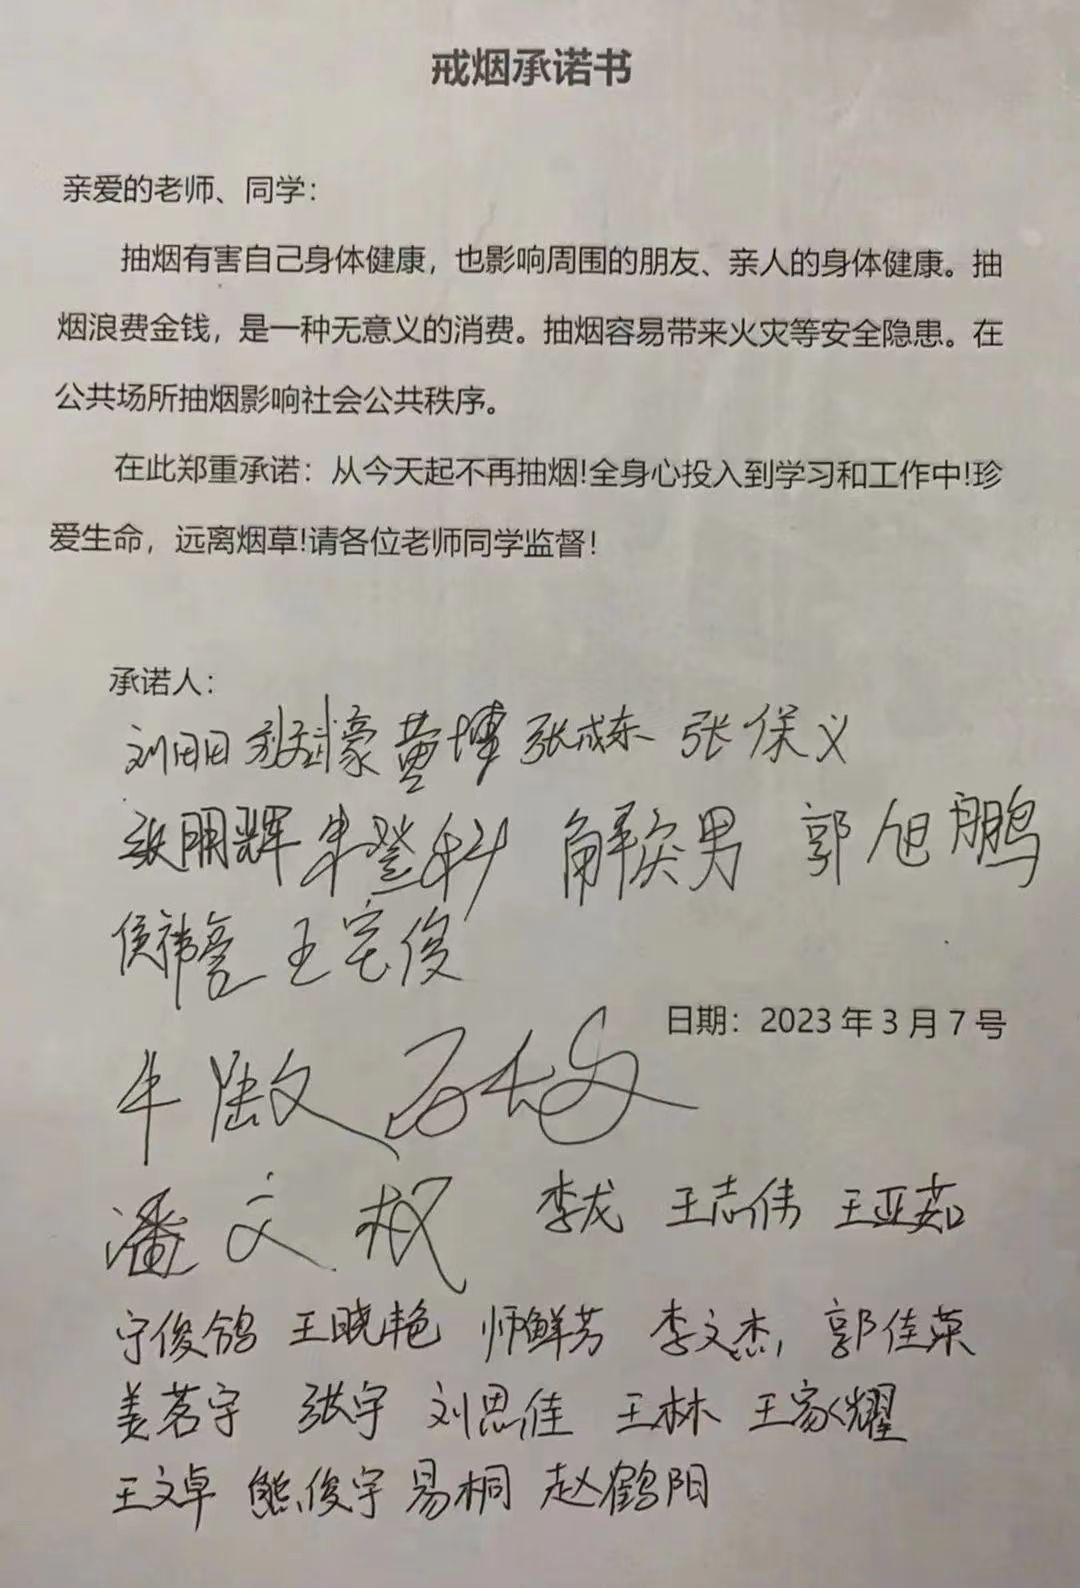 戒烟承诺书
亲爱的老师、同学：
抽烟有害自己身体健康，也影响周围的朋友、亲人的身体健康。抽
烟浪费金钱，是一种无意义的消费。抽烟容易带来火灾等安全隐患。在
公共场所抽烟影响社会公共秩序。
在此郑重承诺：从今天起不再抽烟!全身心投入到学习和工作中!珍
爱生命，远离烟草!请各位老师同学监督！
承诺人：
刘田田 黄博 张成东 张保义
张朋辉 牛登科 解奂男 郭旭鹏
侯祎亮 王宅俊
日期：2023年3月7号
牛 文
潘文权 李龙 王志伟 王亚茹
宁俊鸽 王晓艳 师鲜芳 李文杰 郭佳荣
姜茗宇 张宇 刘思佳 王林 王家耀
王文卓 熊俊宇 易桐 赵鹤阳